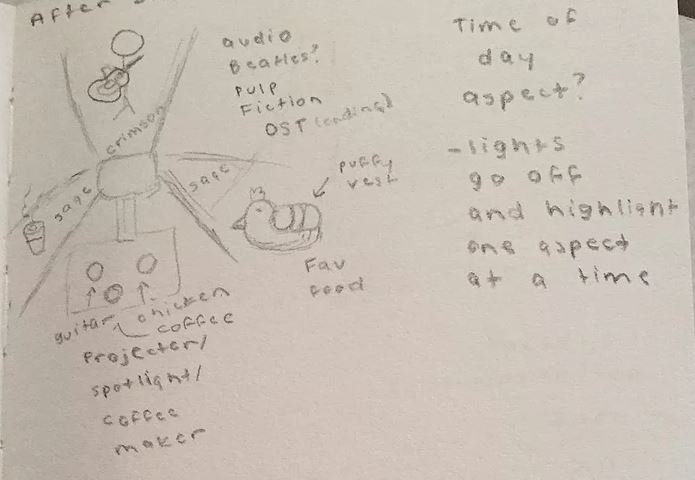 After
crimson
sage
sage
audio
Beatles?
Pulp
Fiction
OST (ending)
puffy
vest
Fav
food
guitar
chicken
coffee
Projector/
spotlight/
coffee
maker
Time of
day
aspect?
- lights
go off
and highlight
one aspect
at a time